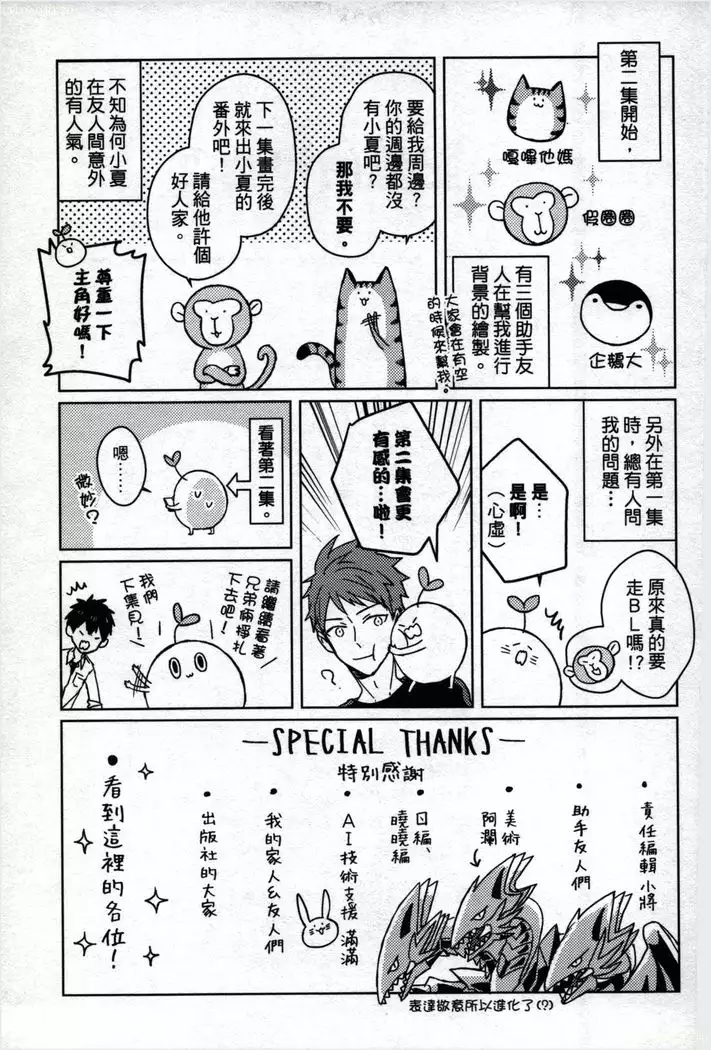 第二集開始，
嘎嗶他媽
假圈圈
企鵝大
有三個助手友
人在幫我進行
背景的繪製。
大家會在有空
的時候來幫我。
要給我周邊？
你的週邊都沒
有小夏吧？
那我不要。
下一集畫完後
就來出小夏的
番外吧！
請給他許個
好人家。
不知為何小夏
在友人間意外
的有人氣。
尊重一下
主角好嗎！
另外在第一集
時，總有人問
我的問題…
原來真的要
走BL嗎!?
是…
是啊！
（心虛）
第二集會更
有感的…啦！
？
看著第二集。
嗯…
微妙？
請繼續看著
兄弟倆掙扎
下去吧！
我們
下集見！
—SPECIAL THANKS—
特別感謝
•責任編輯小將
•助手友人們
•美術
阿瀾
•日編、
曉曉編
•AI技術支援 滿滿
•我的家人&友人們
•出版社的大家
•看到這裡的各位！
表達敬意所以進化了(?)